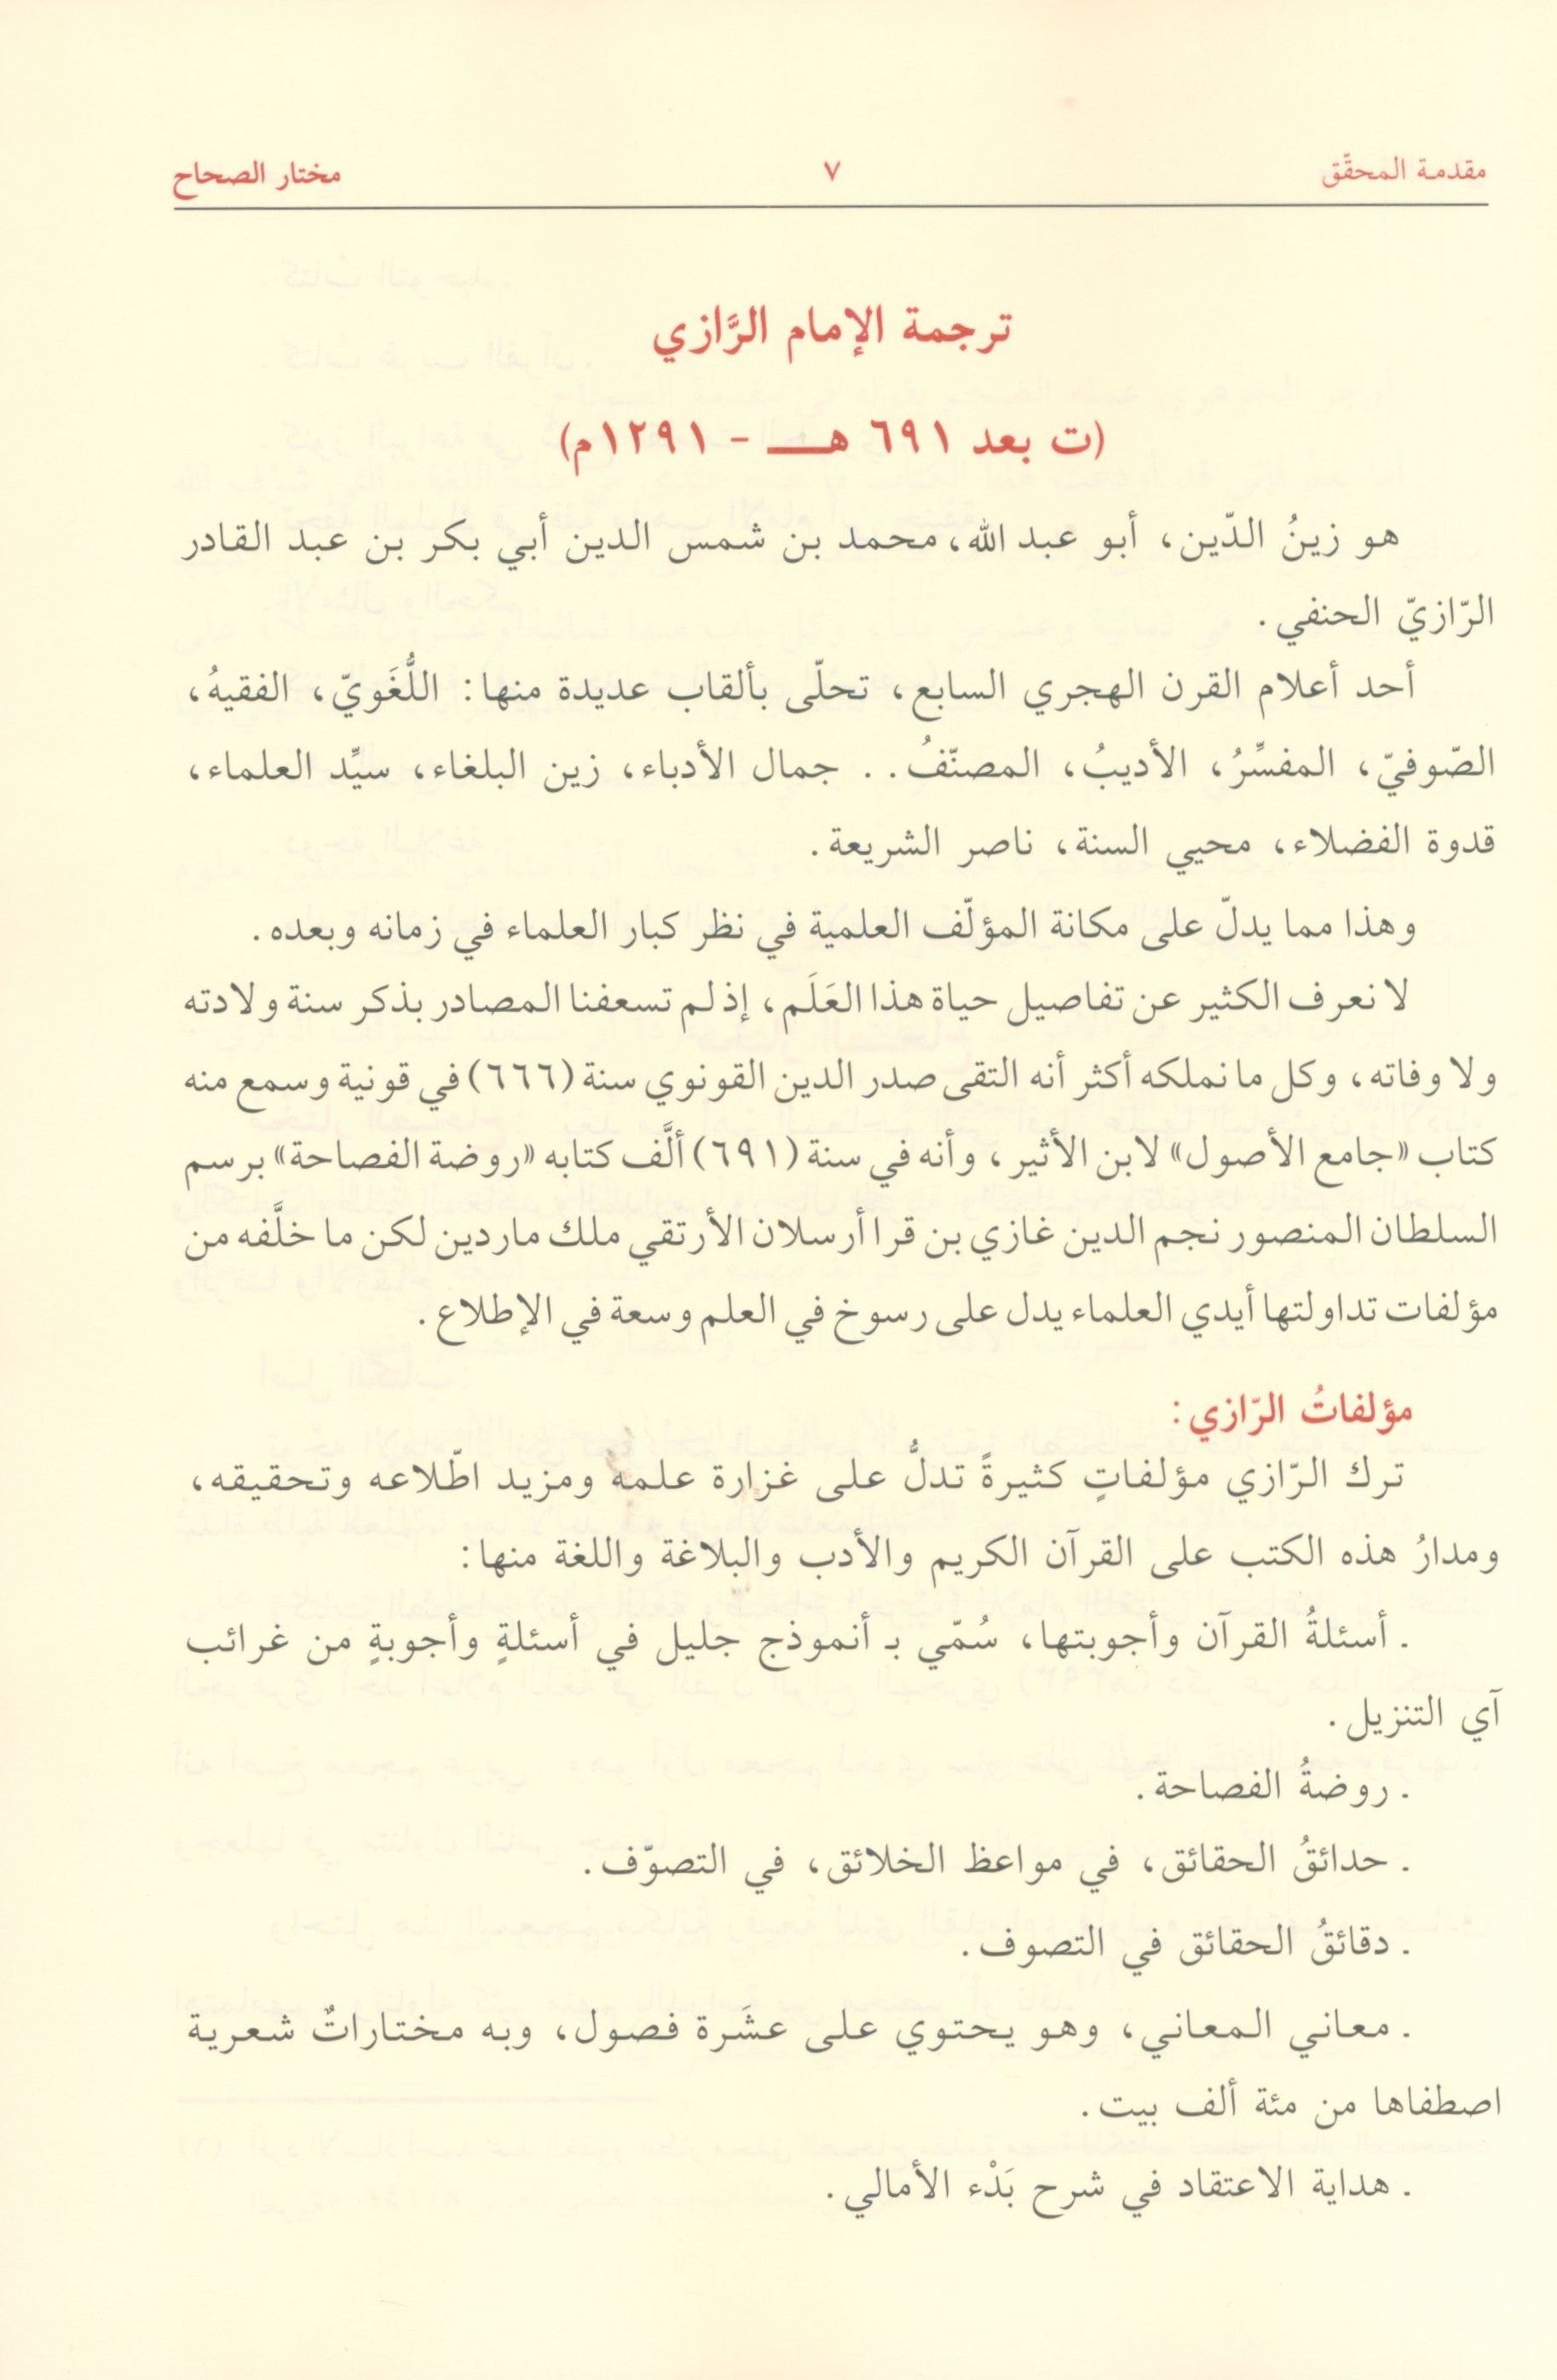 مقدمة المحقّق ٧ مختار الصحاح
ترجمة الإمام الرَّازي
(ت بعد ٦٩١ هـ - ١٢٩١م)
هو زينُ الدّين، أبو عبد الله، محمد بن شمس الدين أبي بكر بن عبد القادر
الرّازيّ الحنفي.
أحد أعلام القرن الهجري السابع، تحلّى بألقاب عديدة منها: اللُّغَويّ، الفقيهُ،
الصّوفيّ، المفسِّرُ، الأديبُ، المصنّفُ.. جمال الأدباء، زين البلغاء، سيِّد العلماء،
قدوة الفضلاء، محيي السنة، ناصر الشريعة.
وهذا مما يدلّ على مكانة المؤلّف العلمية في نظر كبار العلماء في زمانه وبعده.
لا نعرف الكثير عن تفاصيل حياة هذا العَلَم، إذ لم تسعفنا المصادر بذكر سنة ولادته
ولا وفاته، وكل ما نملكه أكثر أنه التقى صدر الدين القونوي سنة (٦٦٦) في قونية وسمع منه
كتاب «جامع الأصول» لابن الأثير، وأنه في سنة (٦٩١) ألَّف كتابه «روضة الفصاحة» برسم
السلطان المنصور نجم الدين غازي بن قرا أرسلان الأرتقي ملك ماردين لكن ما خلَّفه من
مؤلفات تداولتها أيدي العلماء يدل على رسوخ في العلم وسعة في الإطلاع.
مؤلفاتُ الرّازي:
ترك الرّازي مؤلفاتٍ كثيرةً تدلُّ على غزارة علمه ومزيد اطّلاعه وتحقيقه،
ومدارُ هذه الكتب على القرآن الكريم والأدب والبلاغة واللغة منها:
. أسئلةُ القرآن وأجوبتها، سُمّي بـ أنموذج جليل في أسئلةٍ وأجوبةٍ من غرائب
آي التنزيل.
. روضةُ الفصاحة.
. حدائقُ الحقائق، في مواعظ الخلائق، في التصوّف.
. دقائقُ الحقائق في التصوف.
. معاني المعاني، وهو يحتوي على عشَرة فصول، وبه مختاراتٌ شعرية
اصطفاها من مئة ألف بيت.
. هداية الاعتقاد في شرح بَدْء الأمالي.